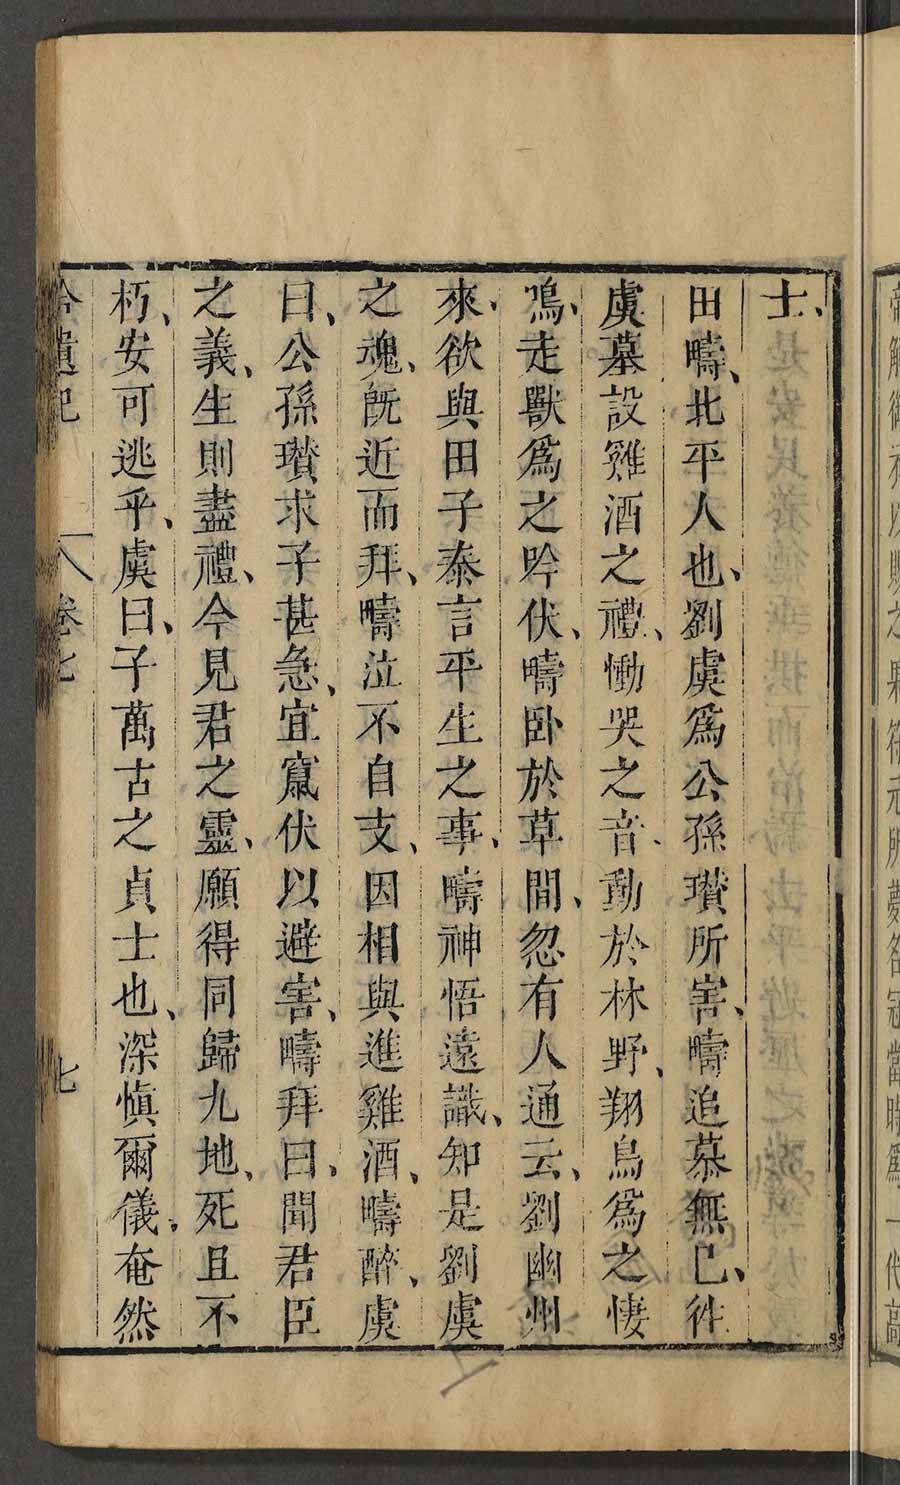 士、
田疇、北平人也、劉虞爲公孫瓚所害、疇追慕無已、往
虞墓設雞酒之禮、慟哭之音、動於林野、翔鳥爲之悽
鳴、走獸爲之吟伏、疇卧於草間、忽有人通云、劉幽州
來、欲與田子泰言平生之事、疇神悟遠識、知是劉虞
之魂、旣近而拜、疇泣不自支、因相與進雞酒、疇醉、虞
曰、公孫瓚求子甚急、宜竄伏以避害、疇拜曰、聞君臣
之義、生則盡禮、今見君之靈、願得同歸九地、死且不
朽、安可逃乎、虞曰、子萬古之貞士也、深慎爾儀、奄然
拾遺記 卷七 七